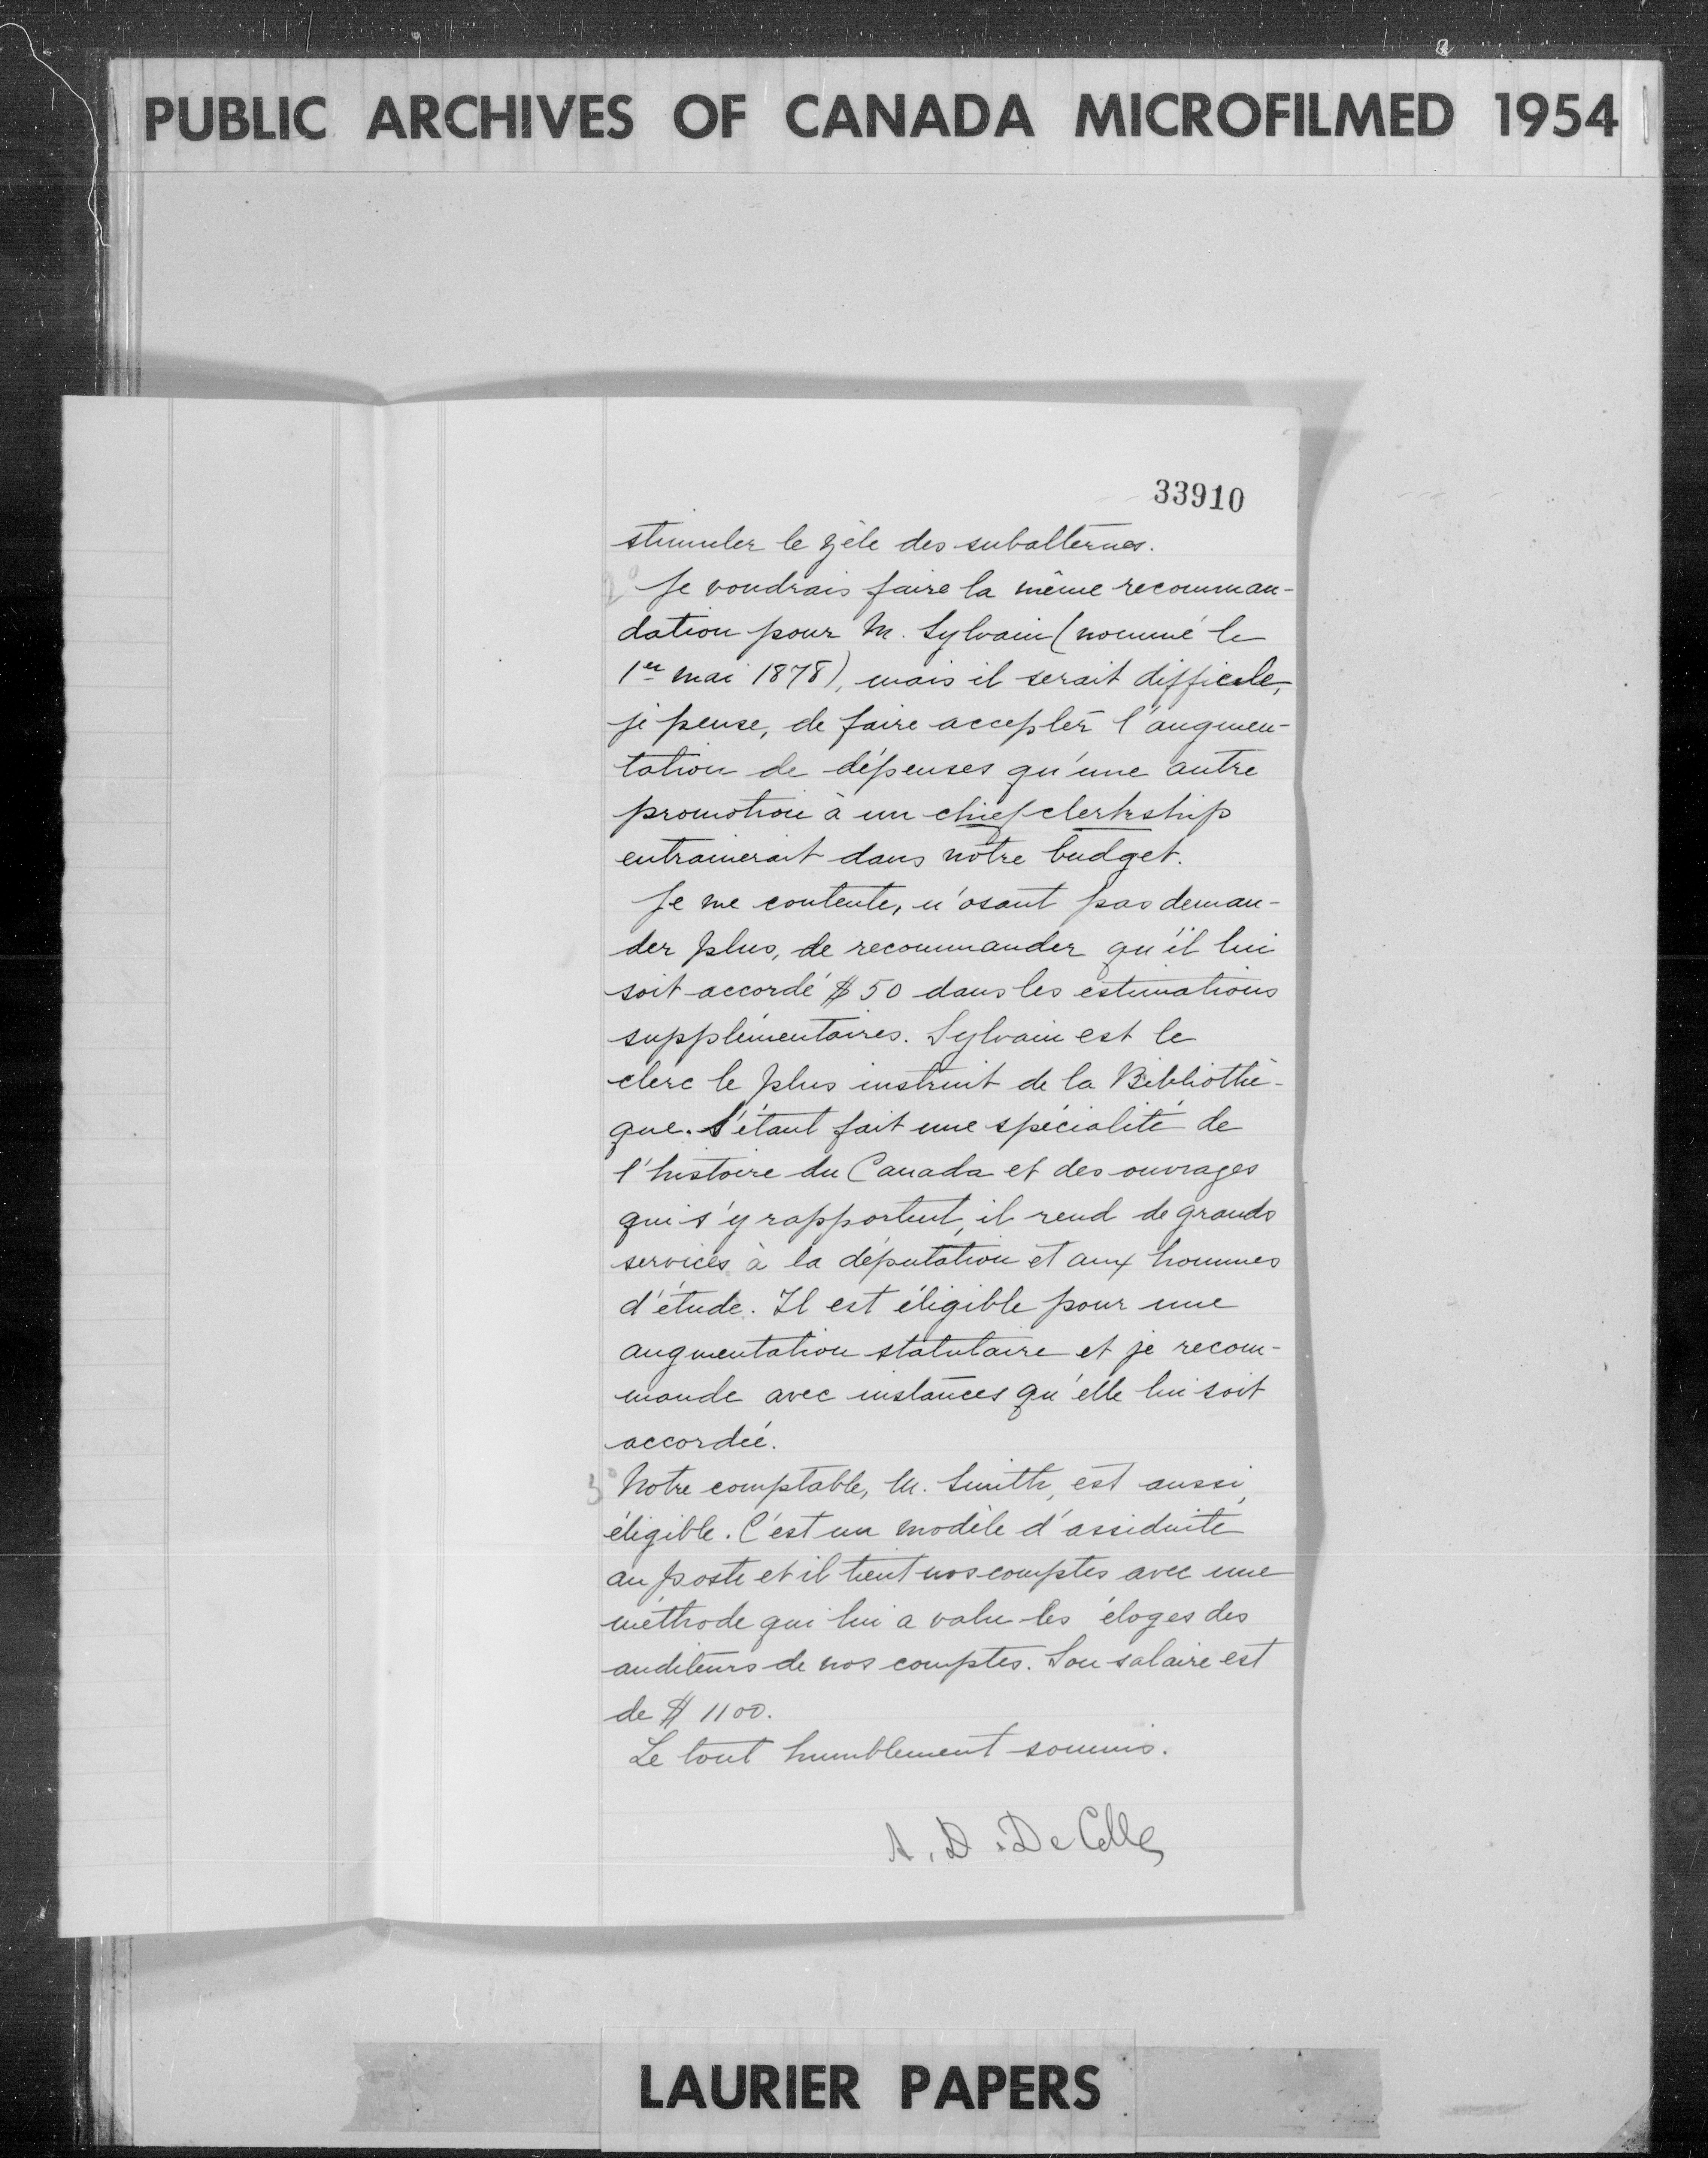 PUBLIC ARCHIVES OF CANADA MICROFILMED 1954
33910
stimuler le zèle des subalternes.
2° Je voudrais faire la même recomman-
dation pour M. Sylvain (nommé le
1er mai 1878), mais il serait difficile,
je pense, de faire accepter l'augmen-
tation de dépenses qu'une autre
promotion à un chief clerkship
entrainerait dans notre budget.
Je me contente, n'osant pas deman-
der plus, de recommander qu'il lui
soit accordé $50 dans les estimations
supplémentaires. Sylvain est le
clerc le plus instruit de la Bibliothè-
que. S'étant fait une spécialité de
l'histoire du Canada et des ouvrages
qui s'y rapportent, il rend de grands
services à la députation et aux hommes
d'étude. Il est éligible pour une
augmentation statutaire et je recom-
mande avec instances qu'elle lui soit
accordée.
3° Notre comptable, M. Smith, est aussi
éligible. C'est un modèle d'assiduité
au poste et il tient nos comptes avec une
méthode qui lui a valu les éloges des
auditeurs de nos comptes. Son salaire est
de $1100.
Le tout humblement soumis.
A. D. DeCelles
LAURIER PAPERS